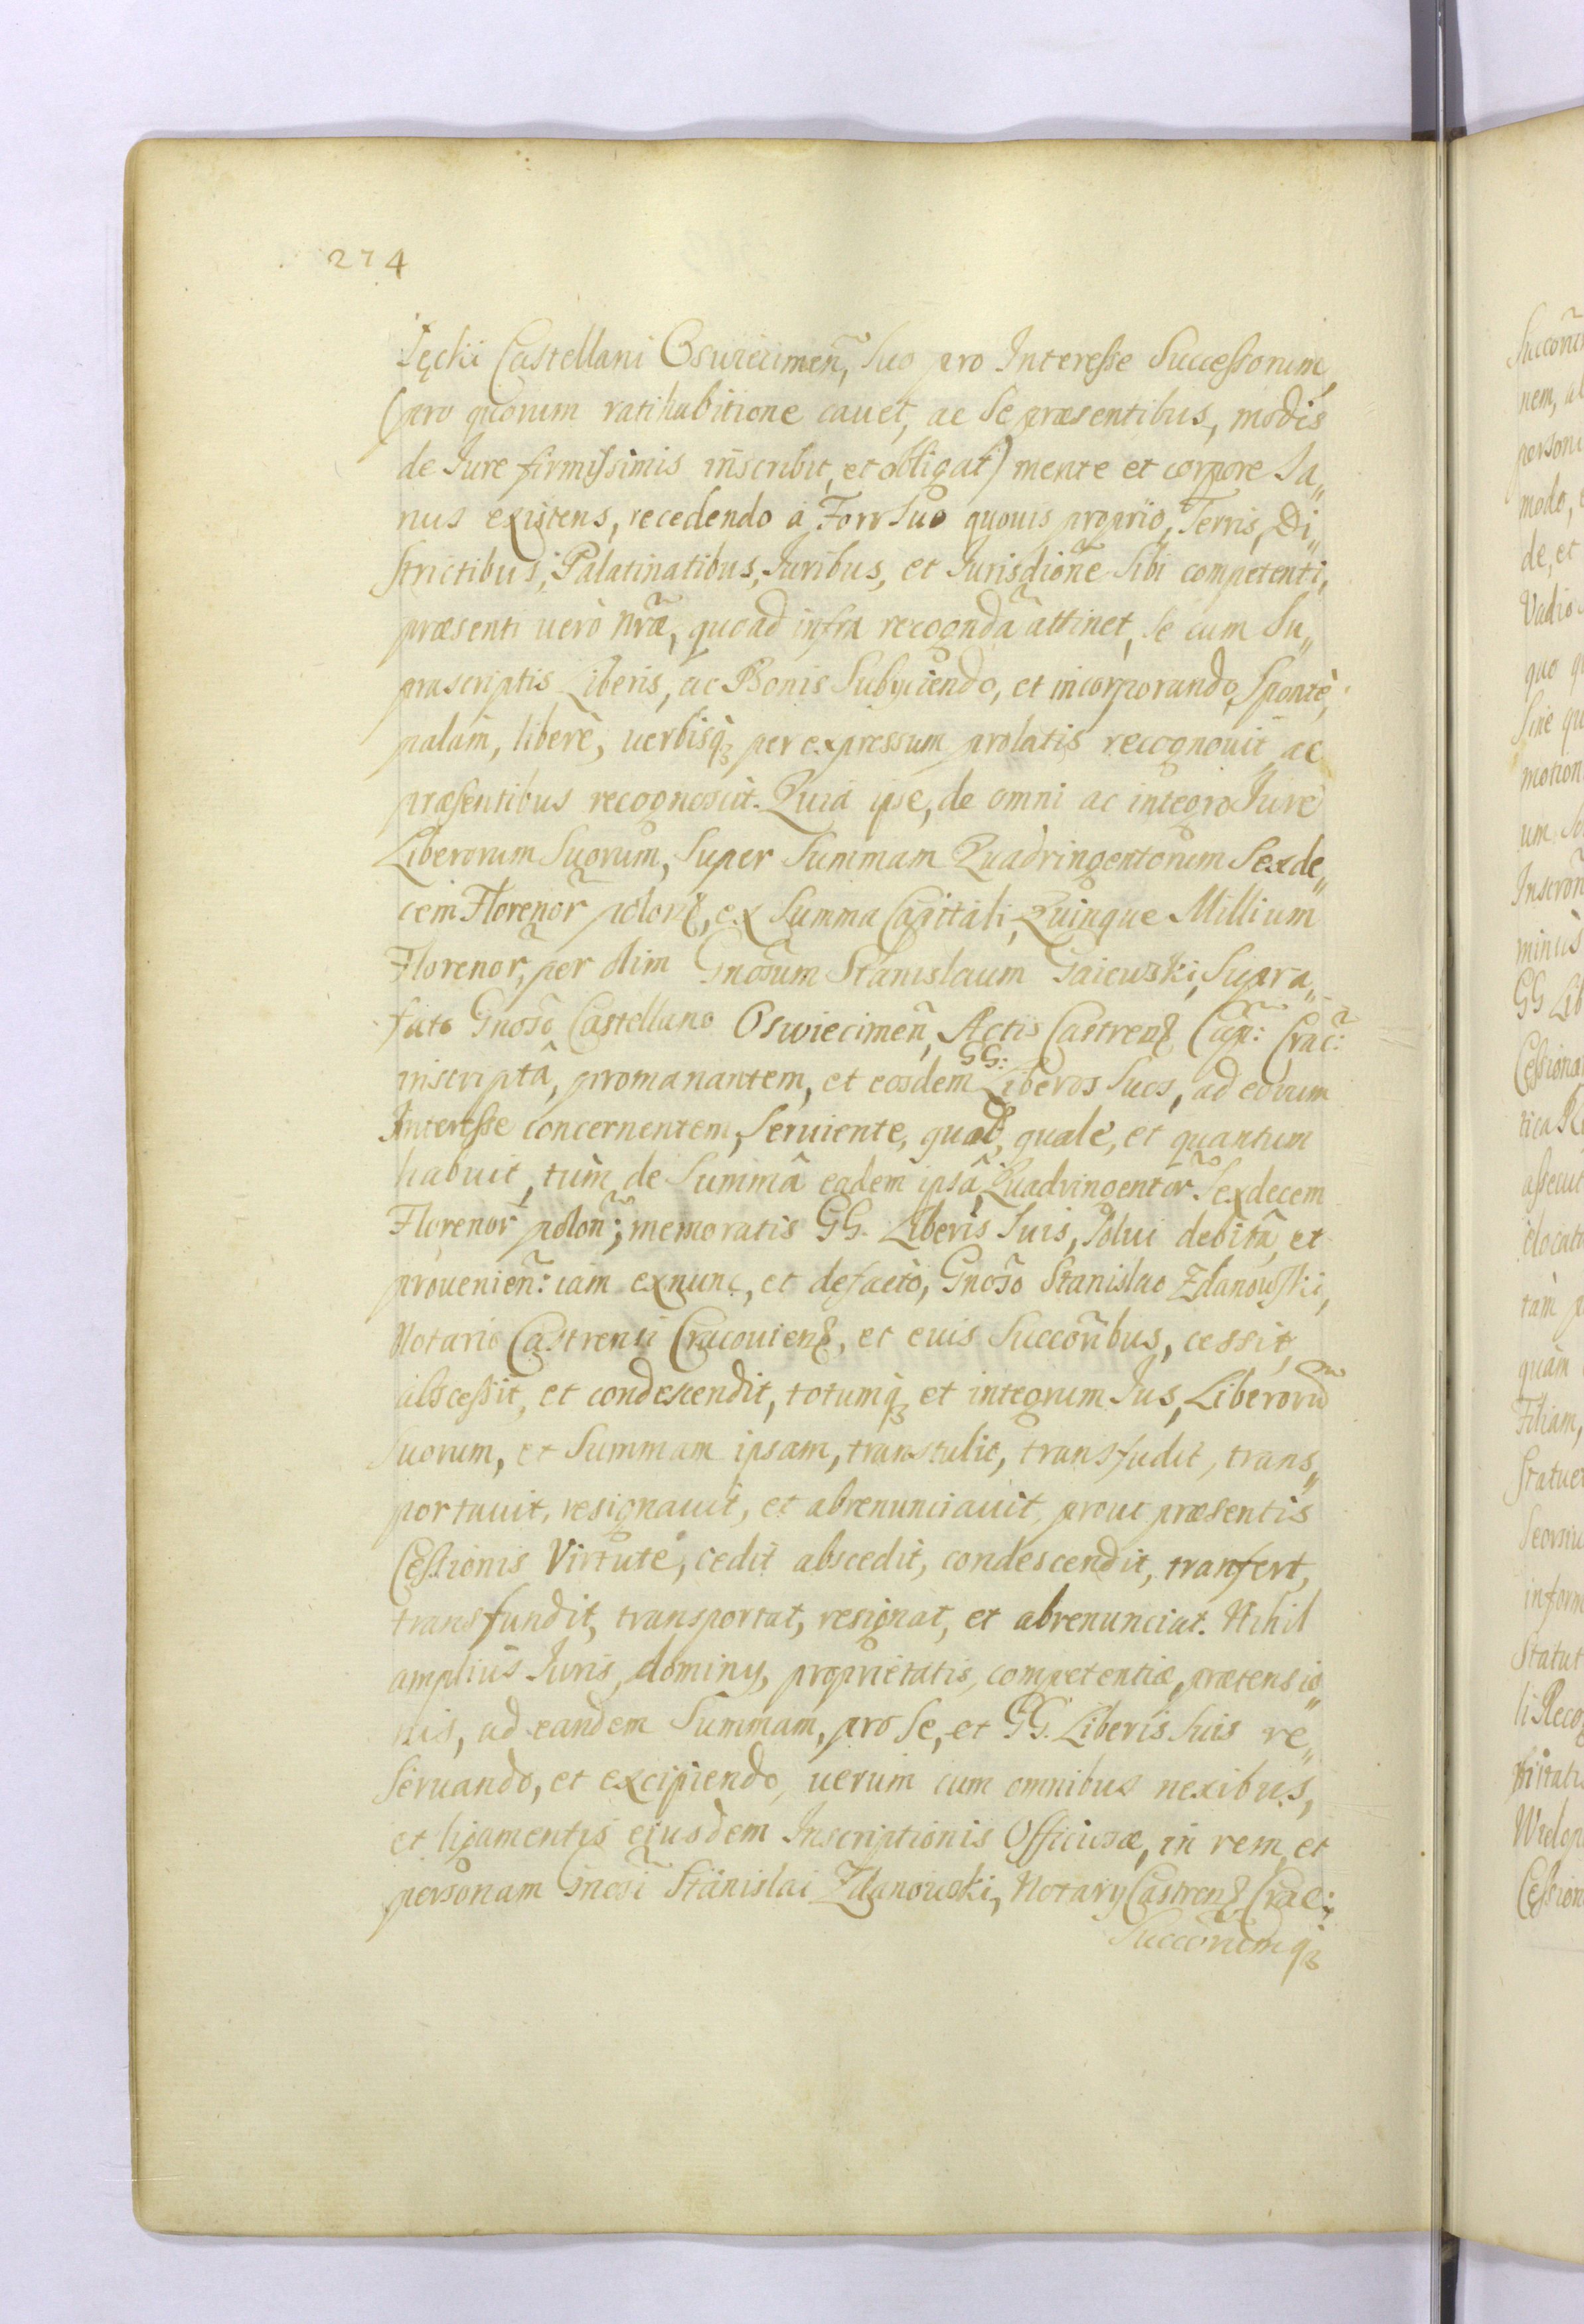 274
Łęcki Castellani Oswiecimen̄, Suo pro Interesse Successorum,
(pro quorum ratihabitione cauet, ac Se præsentibus, modis
de Iure firmissimis inscribit, et obligat) mente et corpore Sa„
nus existens, recedendo à Foro Suo quouis proprio, Terris, Di„
strictibus, Palatinatibus, Iuribus, et Iurisdiōne Sibi competenti,
præsenti uerò nr̄æ, quoad infra recognd̄a attinet, Se cum Su„
prascriptis Liberis, ac Bonis Subÿciendo, et incorporando, Spontè,
palàm, liberè, uerbisq̃ per expressum prolatis recognouit ac
præsentibus recognoscit. Quia ipse, de omni ac integro Iure
Liberorum Suorum, Super Summam Quadringentorum Sexde„
cem Florenor̄ polon, ex Summa Capitali, Quinque Millium
Florenor̄, per olim Gnōsum Stanislaum Gaiewski, Supra„
fato Gnōso Castellano Oswiecimen̄, Actis Castren Cap̄: Crac̄:
inscriptâ, promanantem, et eosdem GG: Liberos Suos, ad eorum
Interesse concernentem, Seruiente, quod, quale, et quantum
habuit, tùm de Summâ eâdem ipsâ, Quadringentor̄ Sexdecem
Florenor̄ polon̄; memoratis GG. Liberis Suis, Solui debitâ, et
prouenien̄: iam exnunc, et defactò, Gnōso Stanislao Zdanowski,
Notario Castrensi Cracouien, et euis Succōribus, cessit,
abscessit, et condescendit, totumq̃ et integrum Ius, Liberorū
Suorum, et Summam ipsam, transtulit, transfudit, trans„
portauit, resignauit, et abrenunciauit, prout præsentis
Cessionis Virtute, cedit abscedit, condescendit, tranfert,
transfundit, transportat, resignat, et abrenunciat. Nihil
ampliùs Iuris, dominÿ, proprietatis, competentiæ, prætensio„
nis, ad eandem Summam, pro Se, et GG. Liberis Suis re„
Seruando, et excipiendo, uerùm cum omnibus nexibus,
et ligamentis eiusdem Inscriptionis Officiosæ, in rem et
personam Gnōsi Stanislai Zdanowski, Notarÿ Castren Crac:
Succōrumq̃
Succōn
nem, a
person
modo,
de, et
Vadio
quo q
Sine qu
motion
um
Inscrōn
minùs
GG Lib
Cessiona
asseuit
elocat
tàm p
quàm
Filiam,
Statuet
inform
Statut
li Reco
Wielop
Cession